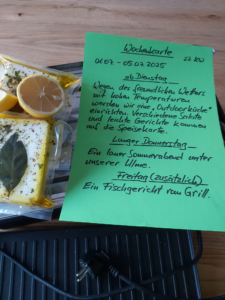 Wochenkarte
27. KW
01.07 - 05.07.2025
ab Dienstag
Wegen des freundlichen Wetters
mit hohen Temperaturen
werden wir eine „Outdoorküche"
einrichten. Verschiedene Salate
und leichte Gerichte kommen
auf die Speisekarte.
Langer Donnerstag
Ein lauer Sommerabend unter
unserer Ulme.
Freitag (zusätzlich)
Ein Fischgericht vom Grill.